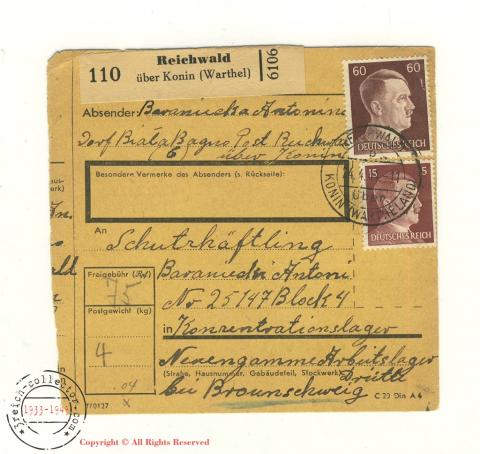 110
Reichwald
über Konin (Warthel)
6106
Absender: Baraniecka Antonina
Dorf Biała Bagno Post Reichwald
über Konin
Besondere Vermerke des Absenders (s. Rückseite):
60 60
DEUTSCHES REICH
15 5
DEUTSCHES REICH
An
Schutzhäftling
Baraniecki Antoni
No 25147 Block 4
in Konzentrationslager
Neuengamme Arbeitslager
(Straße, Hausnummer, Gebäudeteil, Stockwerk)
Drütte
bei Braunschweig
Freigebühr (Rpf)
75
Postgewicht (kg)
4
.04
x
C 23 Din A 6
3reich-collector.com
1933-1945
Copyright © All Rights Reserved